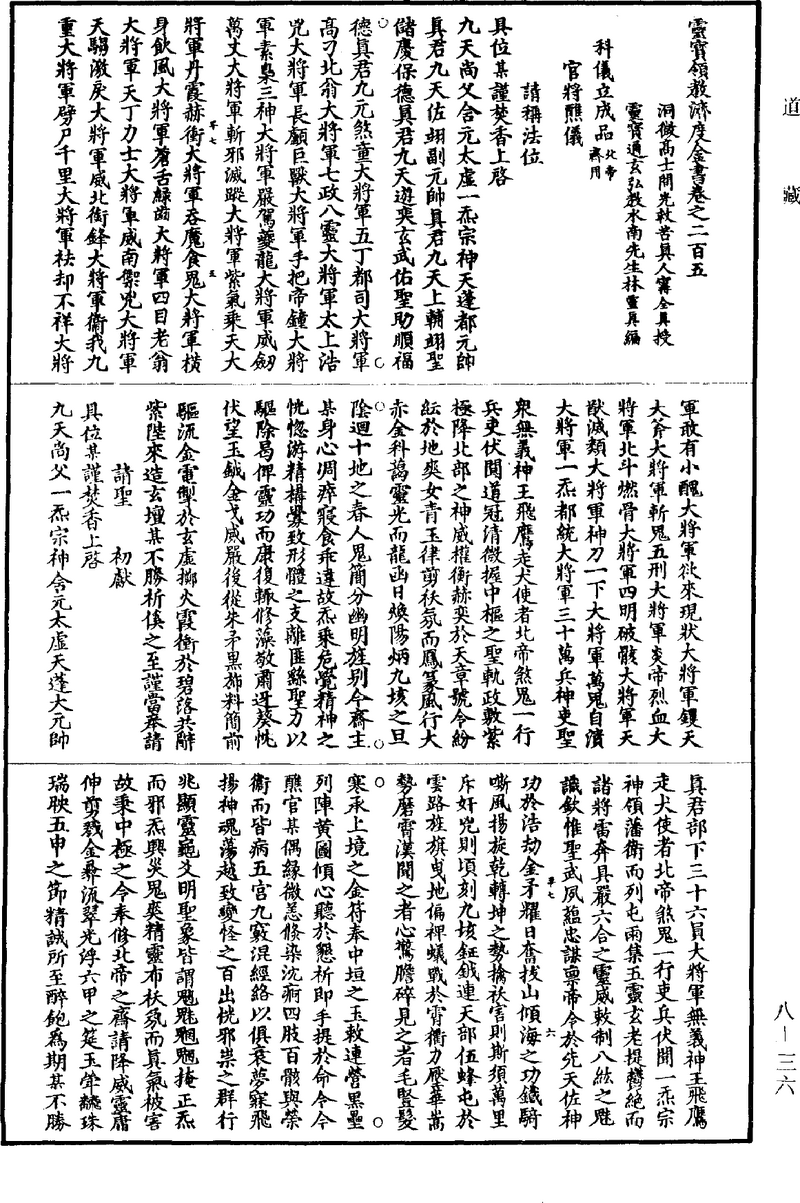 道藏
靈寶領教濟度金書卷之二百五
洞微高士開光救苦真人甯全真授
靈寶通玄弘教水南先生林靈真編
科儀立成品北帝齋用
官將醮儀
請稱法位
具位某謹焚香上啓
九天尚父含元太虛一炁宗神天蓬都元帥
真君九天佐翊副元帥真君九天上輔翊聖
儲慶保德真君九天遊奕玄武佑聖助順福
德真君九元煞童大將軍五丁都司大將軍
高刁北翁大將軍七政八靈大將軍太上浩
兇大將軍長顱巨獸大將軍手把帝鐘大將
軍素梟三神大將軍嚴駕夔龍大將軍威劒
萬丈大將軍斬邪滅蹤大將軍紫氣乘天大
將軍丹霞赫衝大將軍吞魔食鬼大將軍橫
身飲風大將軍蒼舌綠齒大將軍四目老翁
大將軍天丁力士大將軍威南禦兇大將軍
天騶激戾大將軍威北銜鋒大將軍衞我九
重大將軍劈尸千里大將軍袪却不祥大將
軍敢有小醜大將軍欲來現狀大將軍钁天
大斧大將軍斬鬼五刑大將軍炎帝烈血大
將軍北斗燃骨大將軍四明破骸大將軍天
猷滅類大將軍神刀一下大將軍萬鬼自潰
大將軍一炁都統大將軍三十萬兵神吏聖
衆無義神王飛鷹走犬使者北帝煞鬼一行
兵吏伏聞道冠清微握中樞之聖軌政敷紫
極降北部之神威權衡赫奕於天章號令紛
紜於地爽女青玉律剪祅氛而鳳篆風行大
赤金科藹靈光而龍函日煥陽炳九垓之旦
陰迴十地之春人鬼簡分幽明旌别今齋主
某身心凋瘁寢食乖違故炁乘危覺精神之
恍惚游精搆釁致形體之支離匪繇聖力以
驅除曷俾靈功而康復輒修藻敬肅迓葵忱
伏望玉鉞金戈威嚴後從朱矛黑旆料簡前
驅流金電掣於玄虛擲火霞衝於碧落共辭
紫陛來造玄壇某不勝祈俟之至謹當奉請
請聖　初獻
具位某謹焚香上啓
九天尚父一炁宗神含元太虛天蓬大元帥
真君部下三十六員大將軍無義神王飛鷹
走犬使者北帝煞鬼一行吏兵伏聞一炁宗
神領藩衛而列屯雨集五靈玄老提轡絕而
諸將雷奔具嚴六合之靈威敕制八紘之魋
識欽惟聖武夙蘊忠謀禀帝令於先天佐神
功於浩劫金矛耀日奮拔山傾海之功鐵騎
嘶風揚旋乾轉坤之勢擒祅害則斯須萬里
斥奸兇則頃刻九垓鉦鉞連天部伍蜂屯於
雲路旌旗曳地偏裨蟻戰於霄衢力壓華嵩
勢磨霄漢聞之者心驚膽碎見之者毛豎髮
寒承上境之金符奉中垣之玉敕連營黑壘
列陣黄圖傾心聽於懇祈即手提於命令今
醮官某偶緣微恙倏染沈痾四肢百骸與榮
衞而皆病五宫九竅混經絡以俱衰夢寐飛
揚神魂蕩越致變怪之百出恍邪祟之群行
兆顯靈龜爻明聖象皆謂魍魎掩正炁
而邪炁興災鬼爽精靈布祅氛而真氣被害
故秉中極之令奉修北帝之齋請降威靈庸
伸剪戮金彝流翠光浮六甲之筵玉斝飜珠
瑞映五申之節精誠所至醉飽爲期某不勝
八—三六